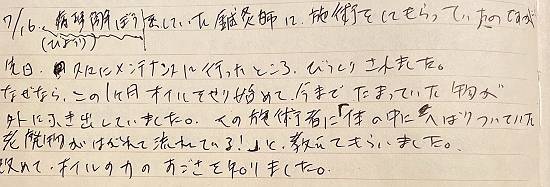 7/16. 病時開ぼう出していた鍼灸師に、施術をしてもらっていたのですが
(ひょう)
先日、スロにメンテナンスに行ったところ、びっくりされました。
なぜなら、この1ヶ月オイルをぜり始めて、今までたまっていた物が
外にふき出していました。その施術者に「体の中にへばりついていた
老廃物がはがれて流れている!」と、教えてもらいました。
改めて、オイルの力のすごさを知りました。